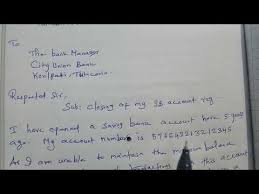 To
The bank Manager
City Union Bank
Kovilpatti, Tuticorin
Respected Sir,
Sub: Closing of my SB account reg
I have opened a saving bank account here 5 years
ago. My account number is
As I am unable to maintain the minimum balance
this account